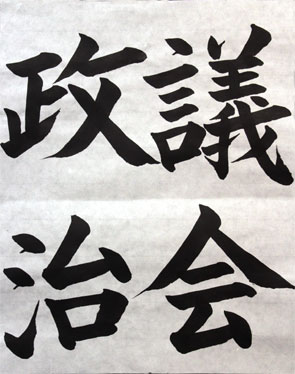 議会
政治